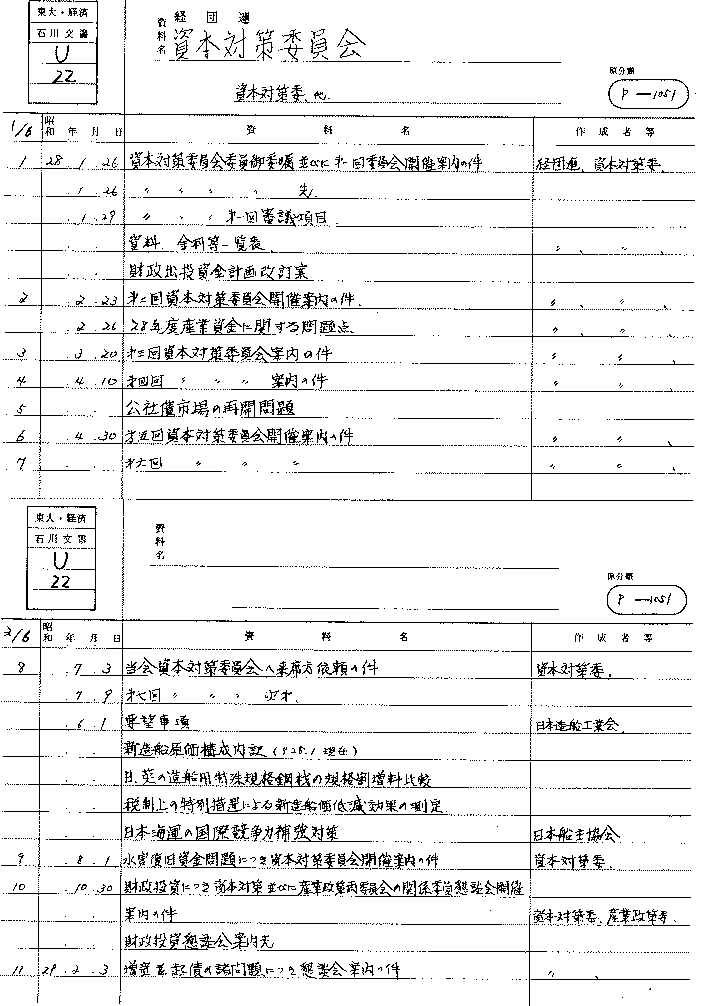 東大・経済
石川文書
U
22
資料名 経団連
資本対策委員会
資本対策委, 他.
原分類
P-1051
1/6 昭和 年 月 日 資料名 作成者等
1 28 . 1 . 26 資本対策委員会委員御委嘱並びに第一回委員会開催案内の件 経団連, 資本対策委,
. 1 . 26 〃 〃 〃 〃 先.
. 1 . 29 〃 〃 〃 第一回審議項目.
資料 金利等一覧表. 〃 , 〃 ,
財政出投資金計画改訂案
2 . 2 . 23 第二回資本対策委員会開催案内の件. 〃 , 〃 ,
. 2 . 26 28年度産業資金に関する問題点 〃 , 〃 ,
3 . 3 . 20 第三回資本対策委員会案内の件 〃 〃 ,
4 . 4 . 10 第四回 〃 〃 〃 案内の件 〃 〃 ,
5 公社債市場の再開問題
6 . 4 . 30 第五回資本対策委員会開催案内の件 〃 〃 ,
7 第六回 〃 〃 〃 〃 〃 ,
東大・経済
石川文書
U
22
資料名
原分類
P-1051
2/6 昭和 年 月 日 資料名 作成者等
8 . 7 . 3 当会資本対策委員会へ乗席方依頼の件 資本対策委,
. 7 . 9 第七回 〃 〃 〃
. 6 . 1 要望事項 日本造船工業会,
新造船原価構成内訳 (28.1 現在)
日.英の造船用特殊規格鋼材の規格割増料比較
税制上の特別措置による新造船価低減効果の測定
日本海運の国際競争力補強対策 日本船主協会
9 . 8 . 1 水害復旧資金問題につき資本対策委員会開催案内の件 資本対策委,
10 . 10 . 30 財政投資につき資本対策並びに産業政策両委員会の関係委員懇談会開催
案内の件 資本対策委, 産業政策委,
財政投資懇談会案内先
11 29 . 2 . 3 増資並起債の諸問題につき懇談会案内の件 〃 ,